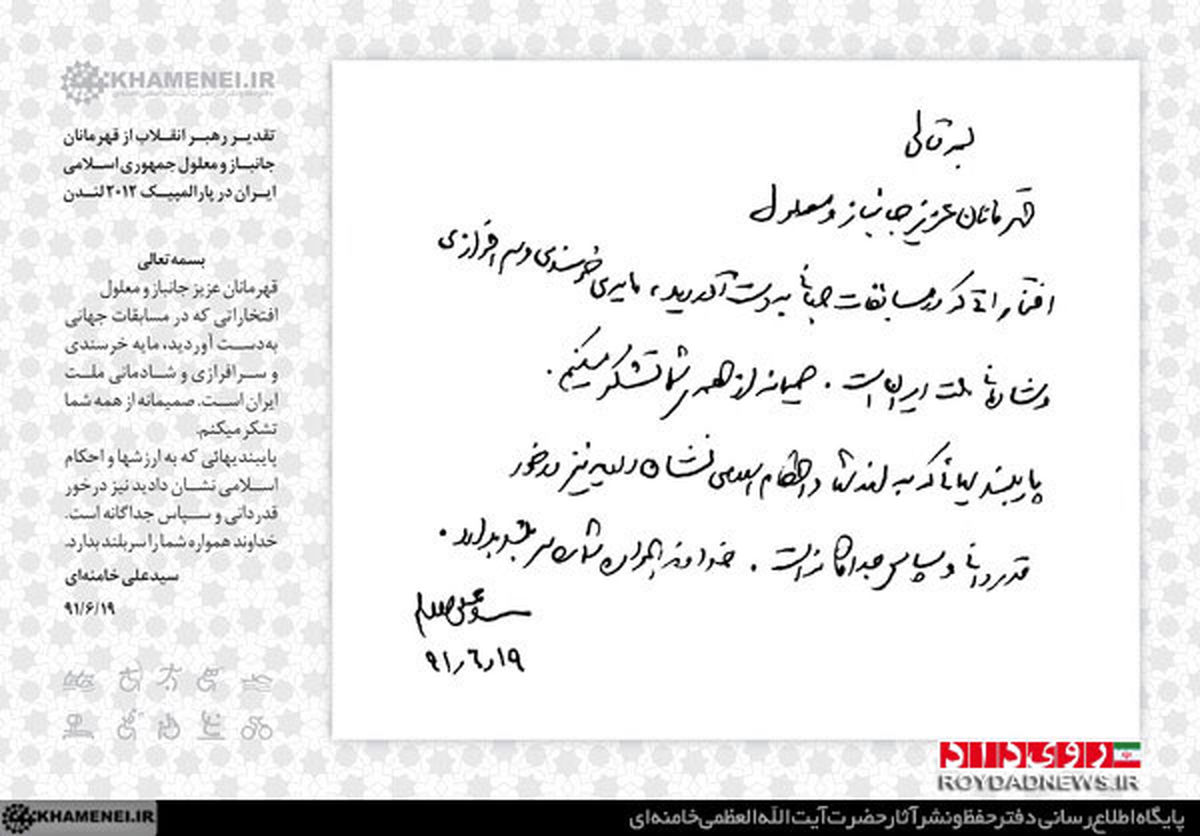 KHAMENEI.IR
تقدیر رهبر انقلاب از قهرمانان
جانباز و معلول جمهوری اسلامی
ایران در پارالمپیک ۲۰۱۲ لندن
بسمه تعالی
قهرمانان عزیز جانباز و معلول
افتخاراتی که در مسابقات جهانی
به‌دست آوردید، مایه خرسندی
و سرافرازی و شادمانی ملت
ایران است. صمیمانه از همه شما
تشکر میکنم.
پایبندیهائی که به ارزشها و احکام
اسلامی نشان دادید نیز درخور
قدردانی و سپاس جداگانه است.
خداوند همواره شما را سربلند بدارد.
سیدعلی خامنه‌ای
۹۱/۶/۱۹
بسمه تعالی
قهرمانان عزیز جانباز و معلول
افتخاراتی که در مسابقات جهانی به دست آوردید، مایه‌ی خرسندی و سرافرازی
و شادمانی ملت ایران است. صمیمانه از همه‌ی شما تشکر میکنم.
پایبندیهائی که به ارزشها و احکام اسلامی نشان دادید نیز درخور
قدردانی و سپاس جداگانه است. خداوند همواره شما را سربلند بدارد.
سیدعلی خامنه‌ای
۹۱٫۶٫۱۹
روی داد
ROYDADNEWS.IR
KHAMENEI.IR
پایگاه اطلاع رسانی دفتر حفظ و نشر آثار حضرت آیت الله العظمی خامنه‌ای